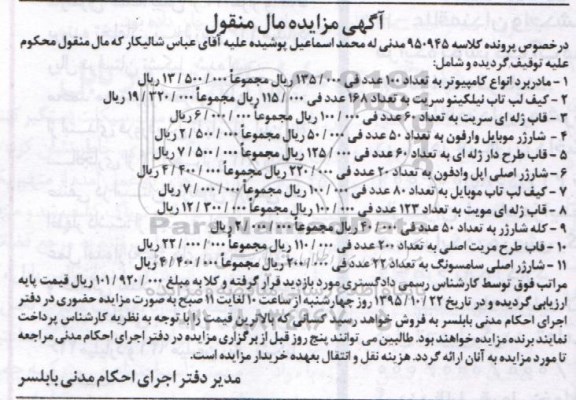 آگهی مزایده مال منقول
درخصوص پرونده کلاسه ۹۵۰۹۴۵ مدنی له محمد اسماعیل پوشیده علیه آقای عباس شالیکار که مال منقول محکوم
علیه توقیف گردیده و شامل:
۱ - مادربرد انواع کامپیوتر به تعداد ۱۰۰ عدد فی ۱۳۵/۰۰۰ ریال مجموعاً ۱۳/۵۰۰/۰۰۰ ریال
۲ - کیف لپ تاپ نیلکینو سریت به تعداد ۱۶۸ عدد فی ۱۱۵/۰۰۰ ریال مجموعاً ۱۹/۳۲۰/۰۰۰ ریال
۳ - قاب ژله ای سریت به تعداد ۶۰ عدد فی ۱۰۰/۰۰۰ ریال مجموعاً ۶/۰۰۰/۰۰۰ ریال
۴ - شارژر موبایل وارفون به تعداد ۵۰ عدد فی ۵۰/۰۰۰ ریال مجموعاً ۲/۵۰۰/۰۰۰ ریال
۵ - قاب طرح دار ژله ای به تعداد ۶۰ عدد فی ۱۲۵/۰۰۰ ریال مجموعاً ۷/۵۰۰/۰۰۰ ریال
۶ - شارژر اصلی اپل وادفون به تعداد ۲۰ عدد فی ۲۲۰/۰۰۰ ریال مجموعاً ۴/۴۰۰/۰۰۰ ریال
۷ - کیف لپ تاپ موبایل به تعداد ۸۰ عدد فی ۱۰۰/۰۰۰ ریال مجموعاً ۷/۰۰۰/۰۰۰ ریال
۸ - قاب ژله ای مویت به تعداد ۱۲۳ عدد فی ۱۰۰/۰۰۰ ریال مجموعاً ۱۲/۳۰۰/۰۰۰ ریال
۹ - کله شارژر به تعداد ۵۰ عدد فی ۴۰/۰۰۰ ریال مجموعاً ۲/۰۰۰/۰۰۰ ریال
۱۰ - قاب طرح مریت اصلی به تعداد ۲۰۰ عدد فی ۱۱۰/۰۰۰ ریال مجموعاً ۲۲/۰۰۰/۰۰۰ ریال
۱۱ - شارژر اصلی سامسونگ به تعداد ۲۲ عدد فی ۲۰۰/۰۰۰ ریال مجموعاً ۴/۴۰۰/۰۰۰ ریال
مراتب فوق توسط کارشناس رسمی دادگستری مورد بازدید قرار گرفته و کلا به مبلغ ۱۰۱/۹۲۰/۰۰۰ ریال قیمت پایه
ارزیابی گردیده و در تاریخ ۱۳۹۵/۱۰/۲۲ روز چهارشنبه از ساعت ۱۰ لغایت ۱۱ صبح به صورت مزایده حضوری در دفتر
اجرای احکام مدنی بابلسر به فروش خواهد رسید. کسانی که بالاترین قیمت را با توجه به نظریه کارشناس پرداخت
نمایند برنده مزایده خواهند بود. طالبین می توانند پنج روز قبل از برگزاری مزایده در دفتر اجرای احکام مدنی مراجعه
تا مورد مزایده به آنان ارائه گردد. هزینه نقل و انتقال بعهده خریدار مزایده است.
مدیر دفتر اجرای احکام مدنی بابلسر